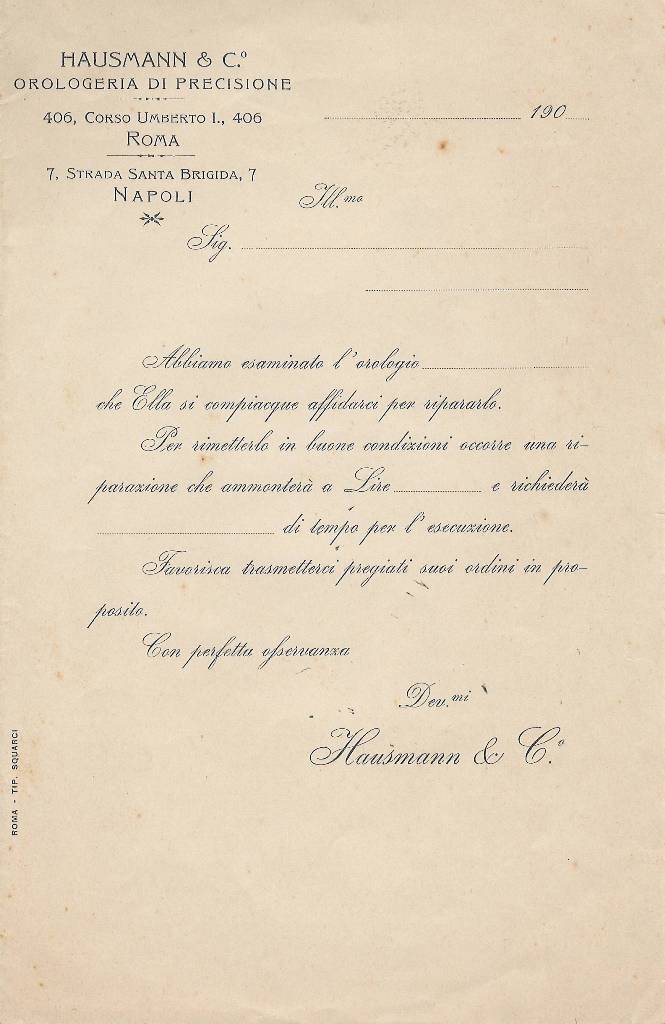 HAUSMANN & C.º
OROLOGERIA DI PRECISIONE
406, CORSO UMBERTO I., 406
ROMA
7, STRADA SANTA BRIGIDA, 7
NAPOLI
190
Ill.mo
Sig.
Abbiamo esaminato l'orologio
che Ella si compiacque affidarci per ripararlo.
Per rimetterlo in buone condizioni occorre una ri-
parazione che ammonterà a Lire e richiederà
di tempo per l'esecuzione.
Favorisca trasmetterci pregiati suoi ordini in pro-
posito.
Con perfetta osservanza
Dev.mi
Hausmann & C.º
ROMA - TIP. SQUARCI